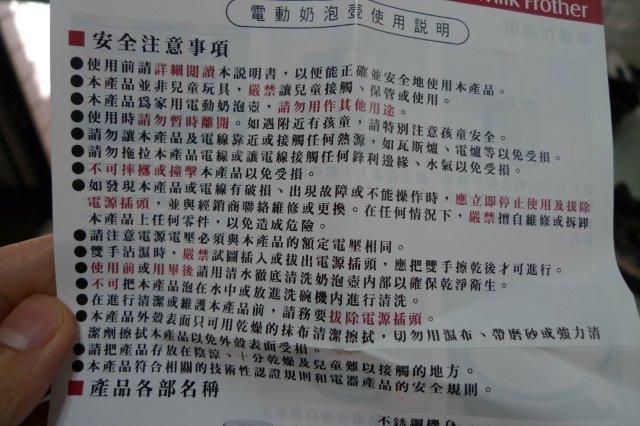 Milk Frother
電動奶泡壺使用說明
■安全注意事項
●使用前請詳細閱讀本說明書，以便能正確並安全地使用本產品。
●本產品並非兒童玩具，嚴禁讓兒童接觸、保管或使用。
●本產品爲家用電動奶泡壺，請勿用作其他用途。
●使用時請勿暫時離開。如遇附近有孩童，請特別注意孩童安全。
●請勿讓本產品及電線靠近或接觸任何熱源，如瓦斯爐、電爐等以免受損。
●請勿拖拉本產品電線或讓電線接觸任何鋒利邊緣、水氣以免受損。
●不可摔擲或撞擊本產品以免受損。
●如發現本產品或電線有破損、出現故障或不能操作時，應立即停止使用及拔除
電源插頭，並與經銷商聯絡維修或更換。在任何情況下，嚴禁擅自維修或拆卸
本產品上任何零件，以免造成危險。
●請注意電源電壓必須與本產品的額定電壓相同。
●雙手沾濕時，嚴禁試圖插入或拔出電源插頭，應把雙手擦乾後才可進行。
●使用前或用畢後請用清水徹底清洗奶泡壺內部以確保乾淨衛生。
●不可把本產品泡在水中或放進洗碗機內進行清洗。
●在進行清潔或維護本產品前，請務要拔除電源插頭。
●本產品外殼表面只可用乾燥的抹布清潔擦拭，切勿用濕布、帶磨砂或強力清
潔劑擦拭本產品以免外殼表面受損。
●請把產品存放在陰涼、十分乾燥及兒童難以接觸的地方。
●本產品符合相關的技術性認證規則和電器產品的安全規則。
■產品各部名稱
不銹鋼機身